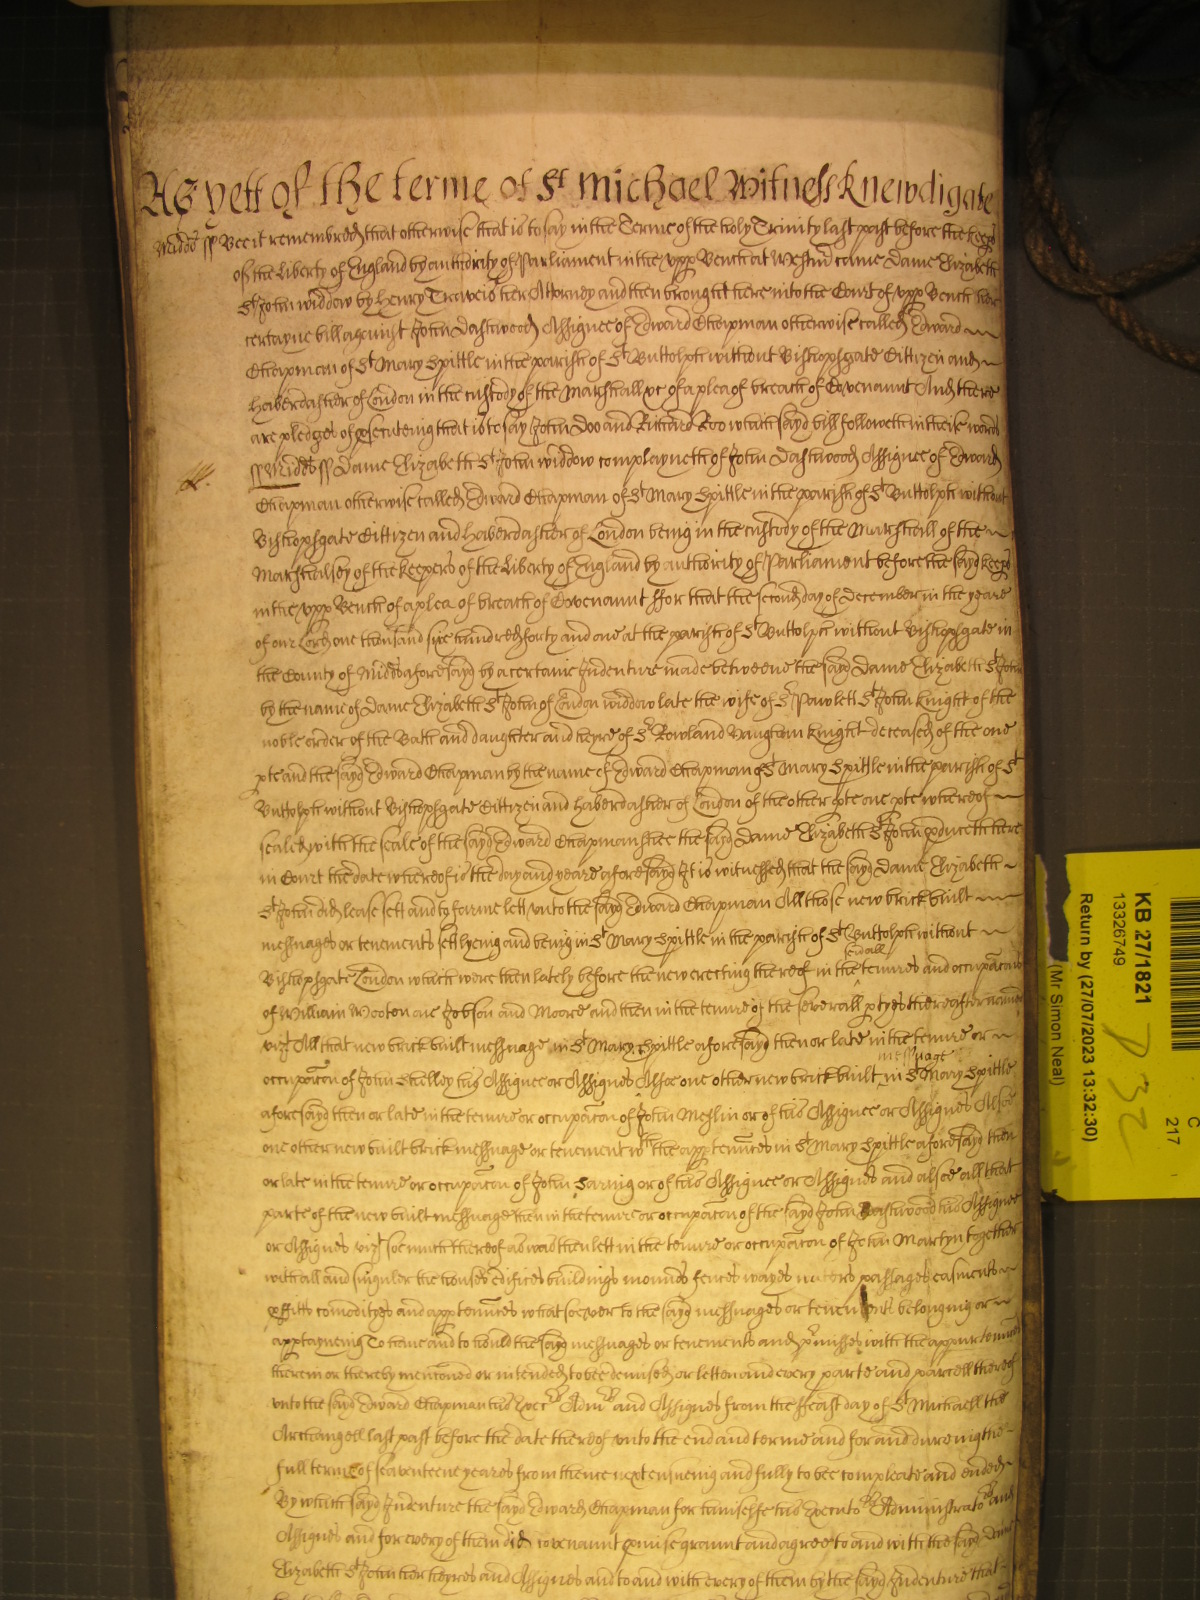 As yett of the terme of St Michael Witness R Newdigate
Midds ss Bee it remembred that otherwise that is to say in the Terme of the holy Trinity last past before the keeps
of the Liberty of England by authority of Parliament in the upp Bench at Westmr came Dame Elizabeth
St John widdow by Henry Travers her Attorney and then brought here into the Court of upp Bench her
certayne bill against John Dashwood Assignee of Edward Chapman otherwise called Edward
Chapman of St Mary Spittle in the parish of St Buttolph without Bishopsgate Cittizen and
haberdasher of London in the custody of the Marshall &c of a plea of breach of Covenaunt And there
are pledges of psecuteing that is to say John Doo and Richard Roo which sayd bill followeth in theise words
ss Midds ss Dame Elizabeth St John widdow complayneth of John Dashwood Assignee of Edward
Chapman otherwise called Edward Chapman of St Mary Spittle in the parish of St Buttolph without
Bishopsgate Cittizen and haberdasher of London being in the custody of the Marshall of the
Marshalsey of the keepers of the Liberty of England by authority of Parliament before the sayd keeps
in the upp Bench of a plea of breach of Covenaunt ffor that the second day of december in the yeare
of our Lord one thousand six hundred forty and one at the parish of St Buttolph without Bishopsgate in
the County of Midds aforesayd by a certaine Indenture made betweene the sayd Dame Elizabeth St John
by the name of Dame Elizabeth St John of London widdow late the wife of Sr Pawlett St John knight of the
noble order of the Bath and daughter and heyre of Sr Rowland Vaughan knight deceased of the one
pte and the sayd Edward Chapman by the name of Edward Chapman of St Mary Spittle in the parish of St
Buttolph without Bishopsgate Cittizen and haberdasher of London of the other pte one pte whereof
sealed with the seale of the sayd Edward Chapman shee the sayd Dame Elizabeth St John pduceth here
in Court the date whereof is the day and yeare aforesayd It is witnessed that the sayd Dame Elizabeth
St John did lease sett and to farme lett unto the sayd Edward Chapman All those new brick built
messuages or tenements sett lyeing and being in St Mary Spittle in the parish of St Buttolph without
Bishopsgate London which were then lately before the new erecting thereof in the sevall tenures and occupacons
of William Wooton one Jobson and Moore and then in the tenure of the severall ptyes thereafter named
vizt All that new brick built messuage in St Mary Spittle aforesayd then or late in the tenure or
occupacon of John Shelley his Assignee or Assignes Alsoe one other new brick built messuage in St Mary Spittle
aforesayd then or late in the tenure or occupacon of John Meslin or of his Assignee or Assignes Alsoe
one other new built brick messuage or tenement wth the apptennces in St Mary Spittle aforesayd then
or late in the tenure or occupacon of John Waring or of his Assignee or Assignes and alsoe all that
parte of the new built messuage then in the tenure or occupacon of the sayd John Dashwood his Assignee
or Assignes vizt soe much thereof as was then lett in the tenure or occupacon of John Martyn together
with all and singuler the houses edifices buildings mounds fences wayes waters passages easments
pffitts comodityes and apptennces whatsoever to the sayd messuages or tenements belonging or
apptayneing To have and to hould the sayd messuages or tenements and pmisses with the appurtennces
therein or thereby mentioned or intended to bee demised or letten and every parte and parcell thereof
unto the sayd Edward Chapman his Execrs Admrs and Assignes from the ffeast day of St Michaell the
Archangell last past before the date thereof unto the end and terme and for and dureing the
full terme of seaventeene yeares from thence next ensueing and fully to bee compleate and ended
By which sayd Indenture the sayd Edward Chapman for himselfe his Executors Administrators and
Assignes and for every of them did covenaunt pmise graunt and agree to and with the sayd Dame
Elizabeth St John her heyres and Assignes and to and with every of them by the sayd Indenture that
KB 27/1821
13326749
Return by (27/07/2023 13:32:30)
(Mr Simon Neal)
C
217
D 32